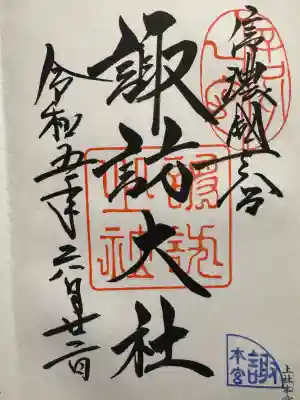 信濃國一宮
諏訪大社
令和五年六月廿二日
諏訪
本宮
上社本宮